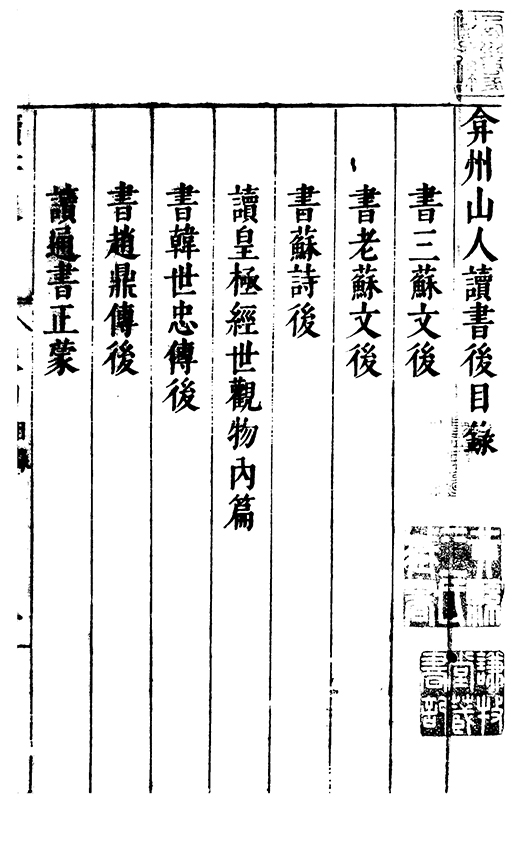 弇州山人讀書後目錄
書三蘇文後
書老蘇文後
書蘇詩後
讀皇極經世觀物內篇
書韓世忠傳後
書趙鼎傳後
讀通書正蒙